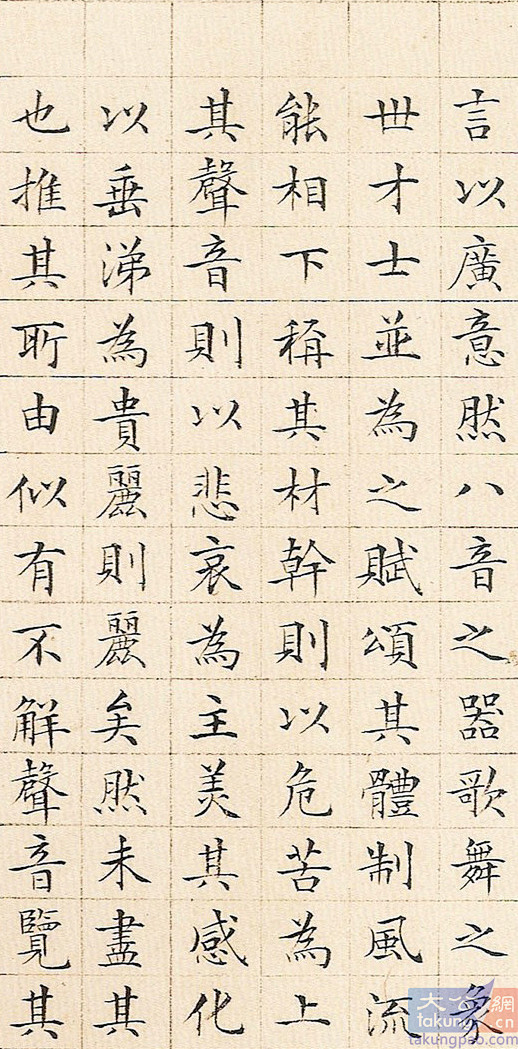 言以廣意然八音之器歌舞之象
世才士並為之賦頌其體制風流
能相下稱其材幹則以危苦為上
其聲音則以悲哀為主美其感化
以垂涕為貴麗則麗矣然未盡其
也推其所由似有不解聲音覽其
大公網
takung.cn
takungpao.com